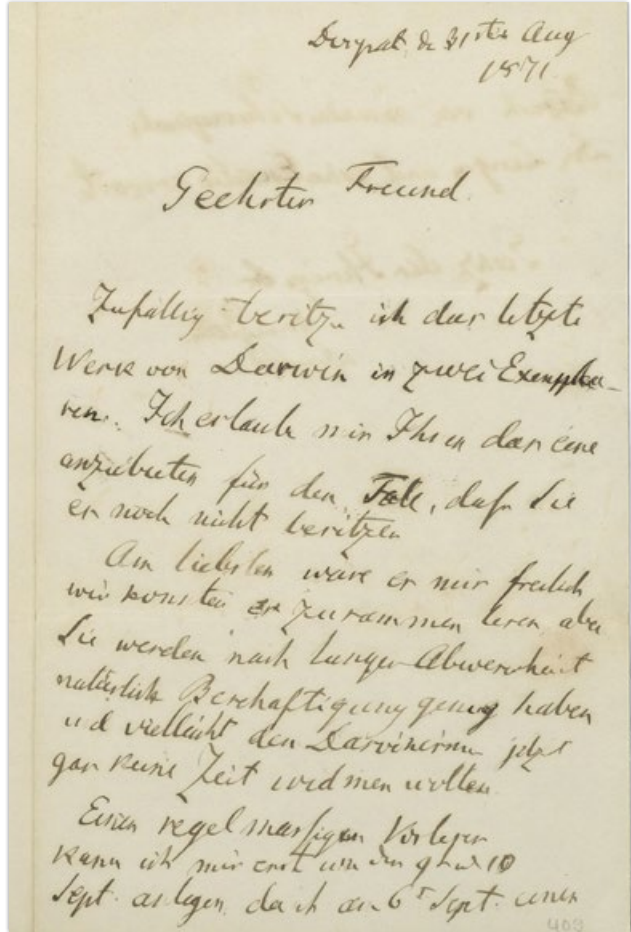 Dorpat, d 31ten Aug
1871
Geehrter Freund.
Zufällig besitze ich das letzte
Werk von Darwin in zwei Exempla-
ren. Ich erlaube mir Ihnen das eine
anzubieten für den Fall, daſs Sie
es noch nicht besitzen
Am liebsten wäre es mir freilich
wir konnten es zusammen lesen, aber
Sie werden nach langer Abwesenheit
natürlich Beschäftigung genug haben
und vielleicht dem Darvinismus jetzt
gar keine Zeit widmen wollen.
Einen regelmässigen Vorleser
kann ich mir erst um den 9 10
Sept. anlegen, da ich am 6t Sept. einen
409